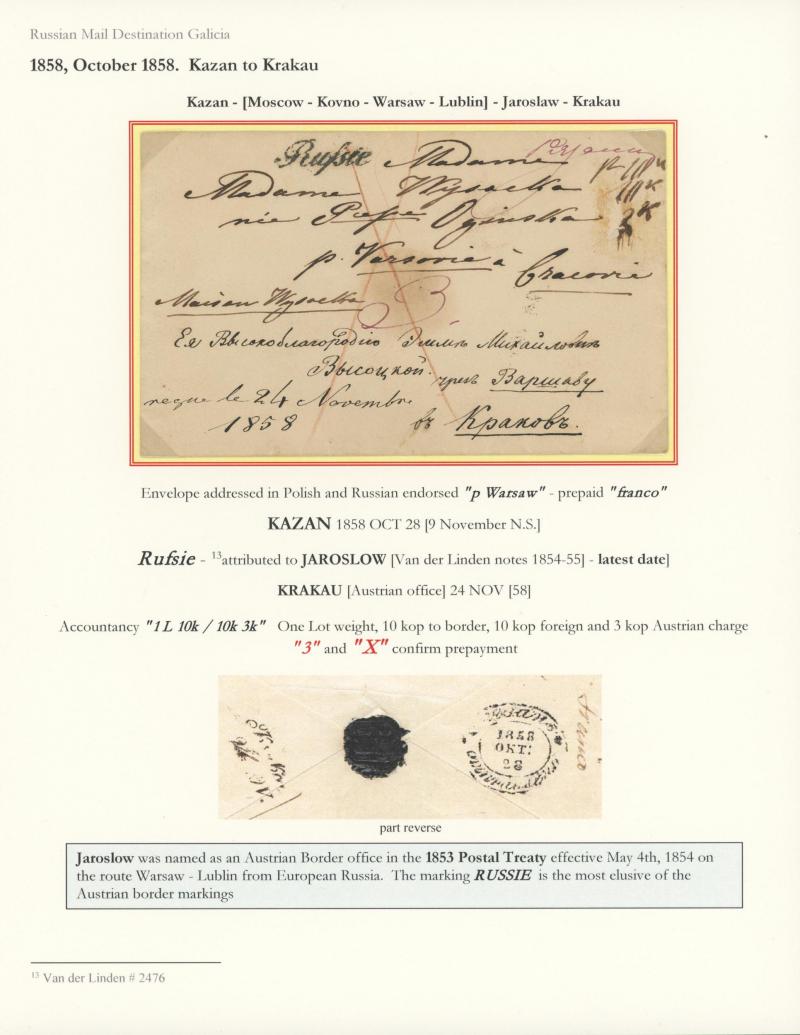 Russian Mail Destination Galicia
1858, October 1858.  Kazan to Krakau
Kazan - [Moscow - Kovno - Warsaw - Lublin] - Jaroslaw - Krakau
Rufsie Madame
Madame Wysocka
née Oginska
p. Varsovie à Cracovie
Maison Wysocka
3
Ея Высокоблагородію Михайловнѣ
Высоцкой. чрезъ Варшаву
reçue le 24 Novembre
1858 въ Краковъ.
Envelope addressed in Polish and Russian endorsed "p Warsaw" - prepaid "franco"
KAZAN 1858 OCT 28 [9 November N.S.]
Rufsie - 13attributed to JAROSLOW [Van der Linden notes 1854-55] - latest date]
KRAKAU [Austrian office] 24 NOV [58]
Accountancy "1L 10k / 10k 3k"  One Lot weight, 10 kop to border, 10 kop foreign and 3 kop Austrian charge
"3" and "X" confirm prepayment
1858
ОКТ:
28
franco
part reverse
Jaroslow was named as an Austrian Border office in the 1853 Postal Treaty effective May 4th, 1854 on
the route Warsaw - Lublin from European Russia.  The marking RUSSIE is the most elusive of the
Austrian border markings
13 Van der Linden # 2476